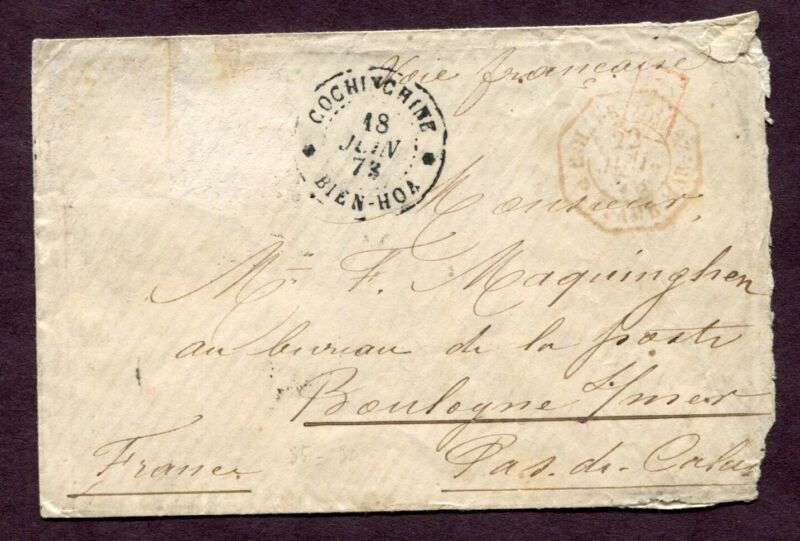 Voie française
COCHINCHINE
18
JUIN
73
BIEN-HOA
Monsieur,
Mr F. Maquinghen
au bureau de la poste
Boulogne s/mer
France
Pas-de-Calais